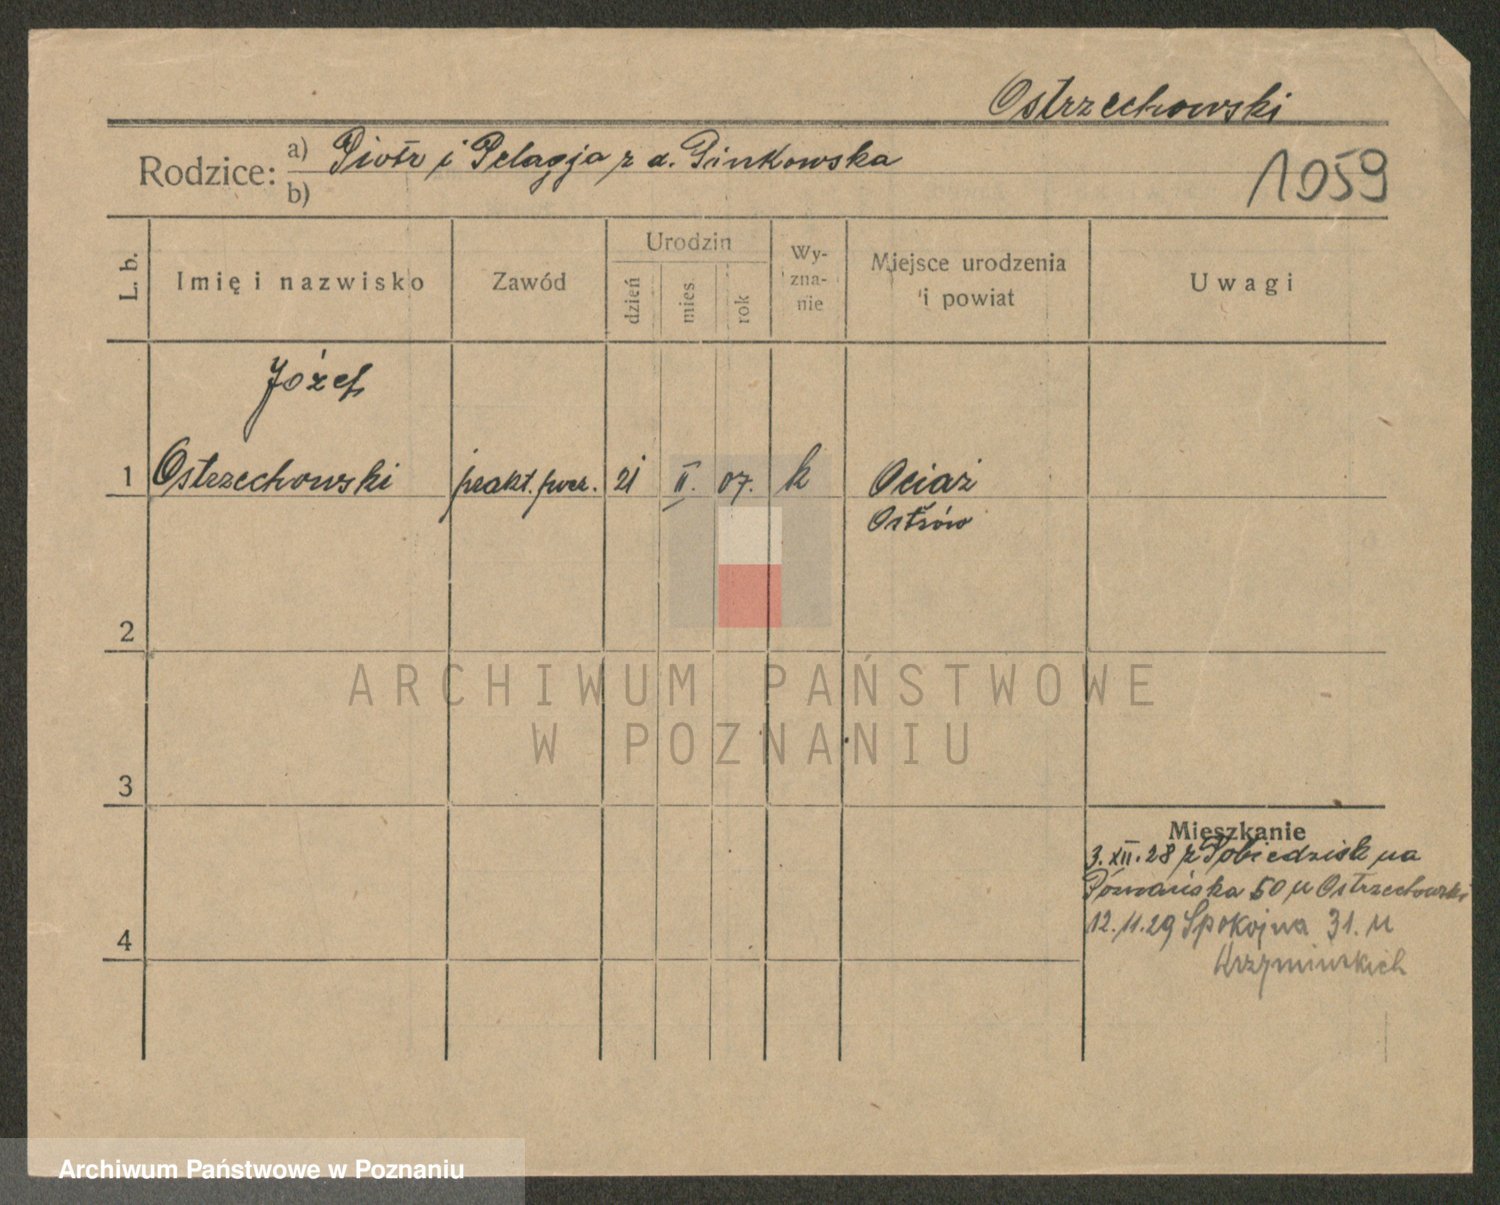 Ostrzechowski
Rodzice: a) Piotr i Pelagja z d. Pinkowska
b)
1059
L. b.
Imię i nazwisko
Zawód
Urodzin
dzień
mies.
rok
Wy-
zna-
nie
Miejsce urodzenia
i powiat
Uwagi
Józef
1 Ostrzechowski prakt. 21 II. 07. k Ociąż
Ostrów
2
3
4
Mieszkanie
3.XII.28 z Pobiedzisk na
Poznańska 50 u Ostrzechowski
12.11.29 Spokojna 31. u
Krzymińskich
ARCHIWUM PAŃSTWOWE
W POZNANIU
Archiwum Państwowe w Poznaniu